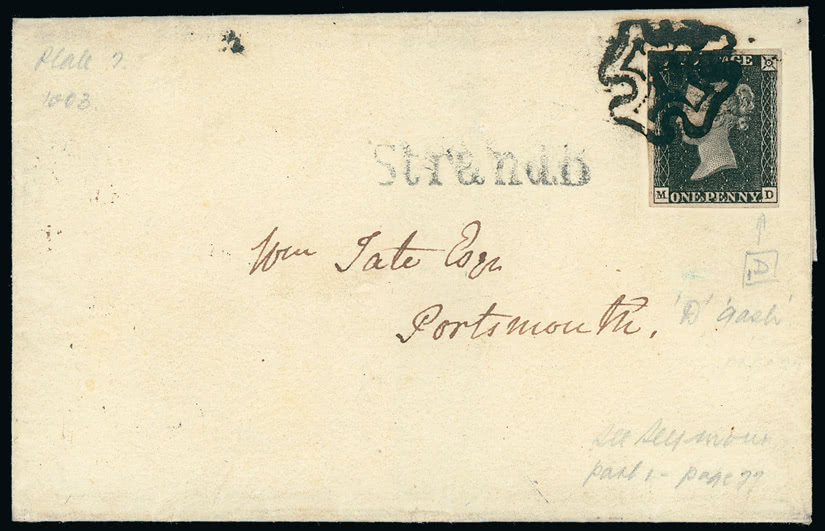 Plate 7.
1003.
POSTAGE
Strand
M ONE PENNY. D
Wm Tate Esqr
Portsmouth.
D
'D' 'gash'
See Seymour
part 1 - page 77